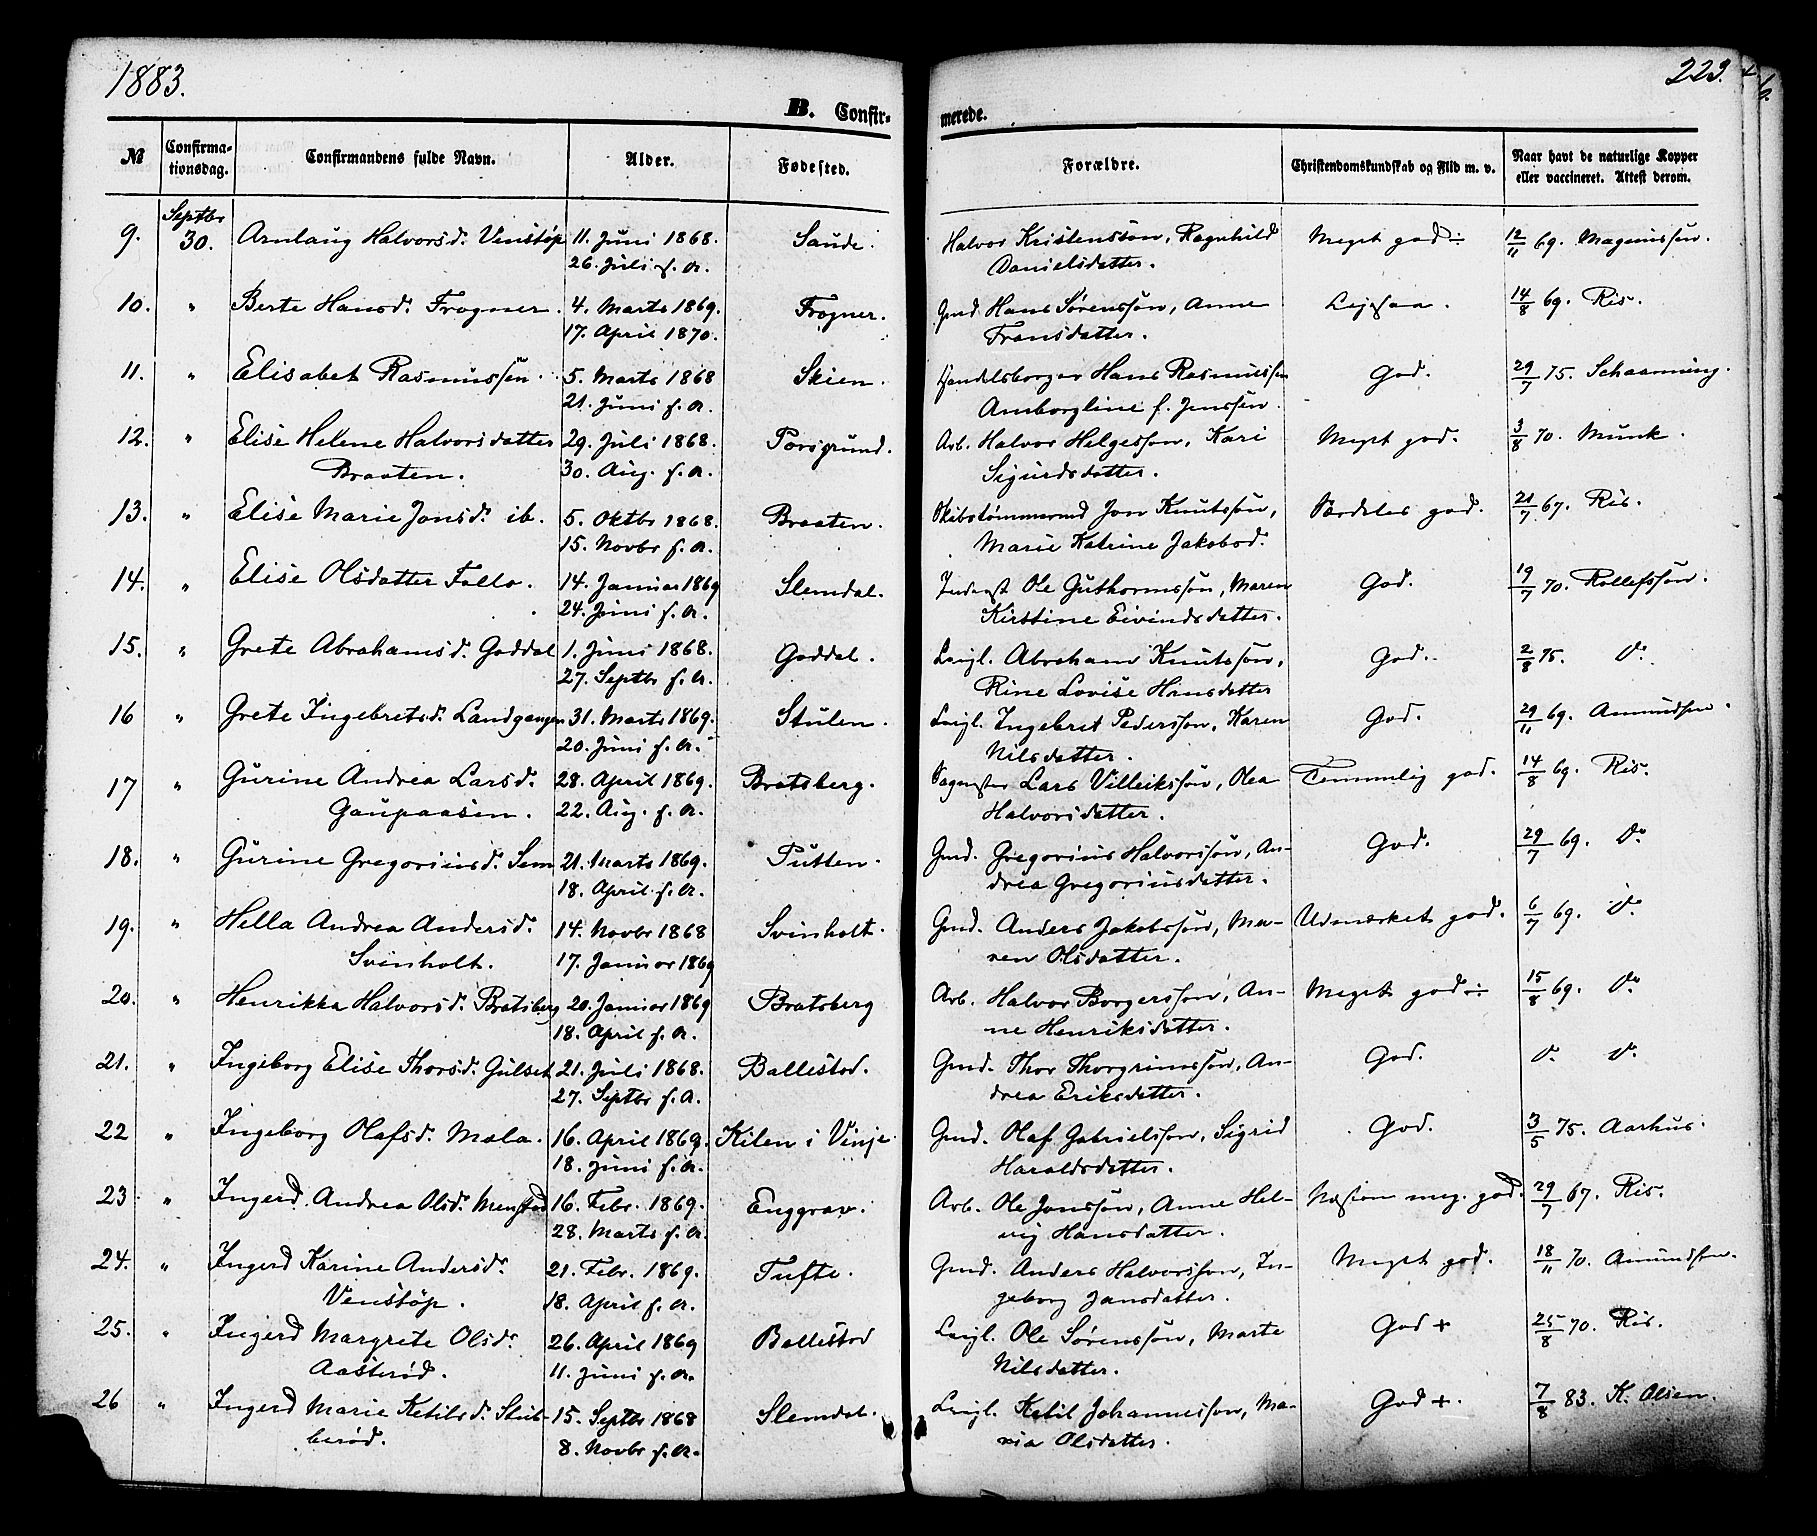 1883.
223.
B. Confir-
merede.
№ Confirma-tionsdag. Confirmandens fulde Navn. Alder. Fødested. Forældre. Christendomskundskab og Flid m. v. Naar havt de naturlige Kopper eller vaccineret. Attest derom.
9. Septbr 30. Arnlaug Halvorsd. Venstøp 11. Juni 1868. Saude. Halvor Kristensson, Ragnhild Meget god ÷ 12/11 69. Magnussen.
26. Juli s. A. Danielsdatter.
10. " Berte Hansd. Frogner. 4. Marts 1869. Frogner. Gmd. Hans Sørenssøn, Anne 14/8 69. Ris.
17. April 1870. Fransdatter.
11. " Elisabet Rasmussen. 5. Marts 1868 Skien. Handelsborger Hans Rasmussen God. 29/7 75. Schaanning.
21. Juni s. A. Amborgline f. Jenssen.
12. " Elise Helene Halvorsdatter 29. Juli 1868. Porsgrund. Arb. Halvor Helgesson, Kari Meget god. 3/8 70. Munk.
Braaten. 30. Aug. s. A. Sigurdsdatter.
13. " Elise Marie Jonsd. ib. 5. Oktbr 1868. Braaten. Skibstømmermd Jon Knutssøn, Særdeles god. 21/7 67. Ris.
15. Novbr s. A. Marie Katrine Jakobsd.
14. " Elise Olsdatter Follo. 14. Januar 1869 Slemdal. Inderst Ole Guthormssøn, Maren God. 19/7 70. Rollefssøn.
24. Juni s. A. Kirstine Eivindsdatter.
15. " Grete Abrahamsd. Goddal 1. Juni 1868. Goddal. Leigl. Abraham Knutssøn, God. 2/8 75. Do
27. Septbr s. A. Rine Lovise Hansdatter
16 " Grete Ingebretsd. Landgangen 31. Marts 1869. Stulen. Leigl. Ingebret Pederssøn, Karen God. 29/11 69. Amundsen.
20. Juni s. A. Nilsdatter.
17 " Gurine Andrea Larsd. 28. April 1869. Bratsberg. Lars Villeikssøn, Olea Temmelig god. 14/8 69. Ris.
Gaupaasen. 22. Aug. s. A. Halvorsdatter.
18. " Gurine Gregoriusd. Sem 21. Marts 1869. Putten. Gmd. Gregorius Halvorssøn, An- God. 29/7 69. Do
18. April s. A. drea Gregoriusdatter.
19. " Hella Andrea Andersd. 14. Novbr 1868 Svinholt. Gmd. Anders Jakobssøn, Ma- Udmærket god. 6/7 69. Do
Svinholt. 17. Januar 1869 ren Olsdatter.
20. " Henrikka Halvorsd. Bratsberg 20. Januar 1869 Bratsberg Arb. Halvor Borgerssøn, An- Meget god ÷ 15/8 69. Do
18. April s. A. ne Henriksdatter.
21. " Ingeborg Elise Thorsd. Gulset 21. Juli 1868. Ballestad. Gmd. Thor Thorgrimssøn, An- God. Do Do
27. Septbr s. A. drea Eriksdatter.
22 " Ingeborg Olafsd. Mæla. 16. April 1869. Kilen i Vinje. Gmd. Olaf Gabrielssøn, Sigrid God. 3/5 75. Aarhus.
18. Juni s. A. Haraldsdatter.
23 " Ingerd Andrea Olsd. Menstad 16. Febr. 1869. Enggrav. Arb. Ole Jonssøn, Anne Hel- Næsten meg. god. 29/7 67. Ris.
28. Marts s. A. vig Hansdatter.
24. " Ingerd Karine Andersd. 21. Febr. 1869. Tufte. Gmd. Anders Halvorssøn, In- Meget god. 18/11 70. Amundsen.
Venstøp. 18. April s. A. geborg Jansdatter.
25. " Ingerd Margrete Olsd. 26. April 1869 Ballestad Leigl. Ole Sørenssøn, Marte God + 25/8 70. Ris.
Aasterød. 11. Juni s. A. Nilsdatter.
26 " Ingerd Marie Ketilsd. Stub- 15. Septbr 1868 Slemdal. Leigl. Ketil Johannessøn, Ma- God +. 7/8 83. K. Olsen.
berød. 8. Novbr s. A. ria Olsdatter.